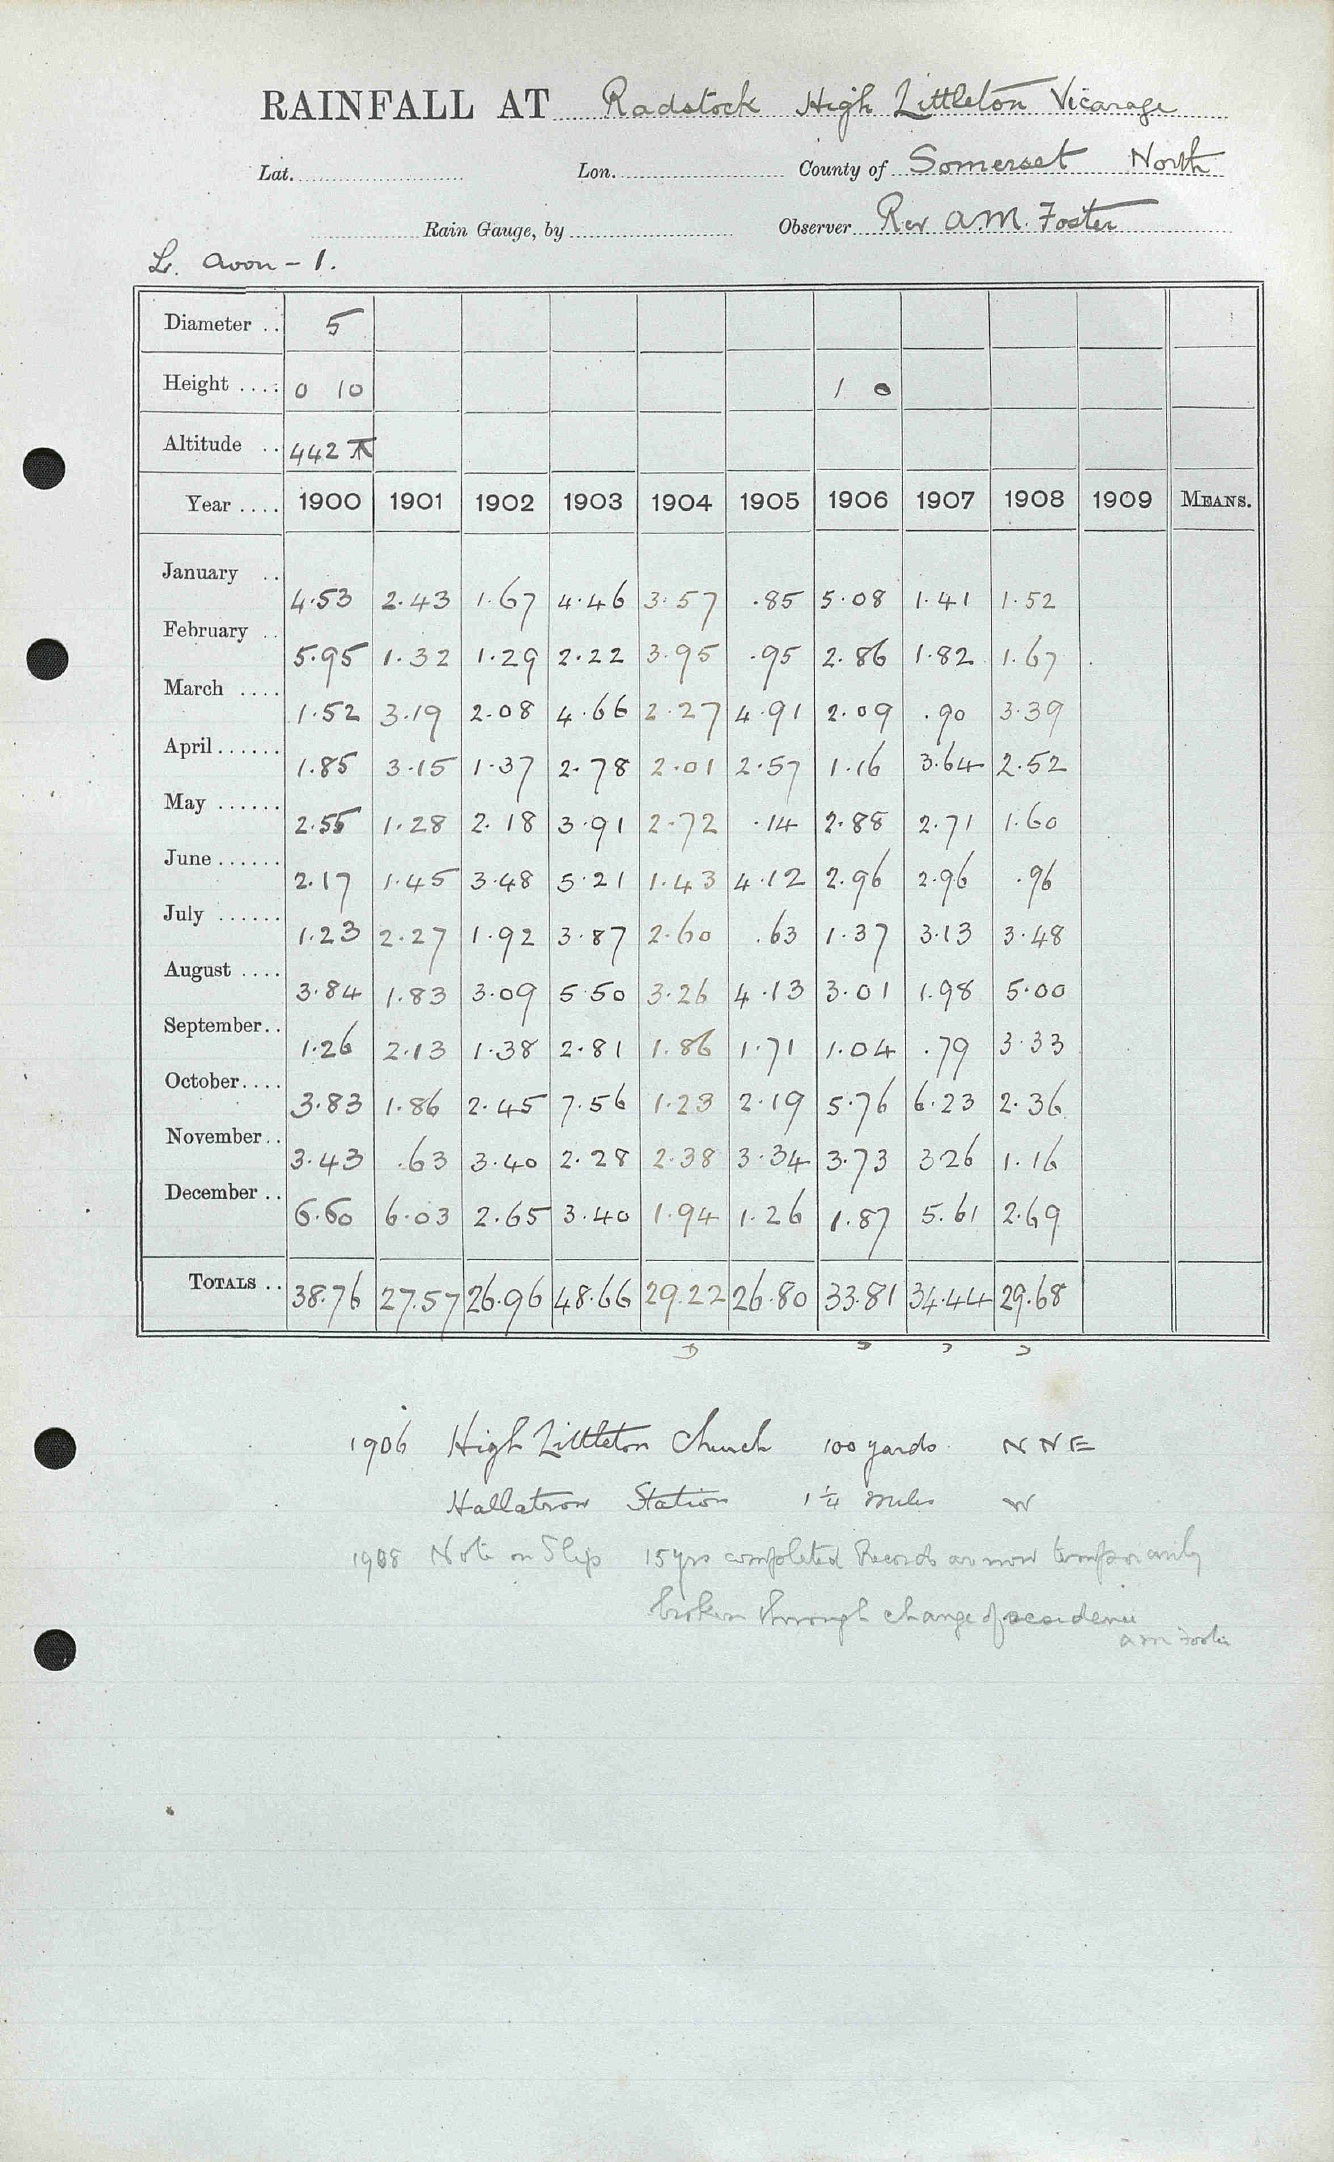 RAINFALL AT Radstock High Littleton Vicarage
Lat. Lon. County of Somerset North
Rain Gauge, by Observer Rev A.M. Foster
L. Avon - 1.
Diameter .. 5
Height .... 0 10 1 0
Altitude .. 442
Year .... 1900 1901 1902 1903 1904 1905 1906 1907 1908 1909 MEANS.
January .. 4.53 2.43 1.67 4.46 3.57 .85 5.08 1.41 1.52
February .. 5.95 1.32 1.29 2.22 3.95 .95 2.86 1.82 1.67
March .... 1.52 3.19 2.08 4.66 2.27 4.91 2.09 .90 3.39
April ...... 1.85 3.15 1.37 2.78 2.01 2.57 1.16 3.64 2.52
May ...... 2.55 1.28 2.18 3.91 2.72 .14 2.88 2.71 1.60
June ...... 2.17 1.45 3.48 5.21 1.43 4.12 2.96 2.96 .96
July ...... 1.23 2.27 1.92 3.87 2.60 .63 1.37 3.13 3.48
August .... 3.84 1.83 3.09 5.50 3.26 4.13 3.01 1.98 5.00
September .. 1.26 2.13 1.38 2.81 1.86 1.71 1.04 .79 3.33
October .... 3.83 1.86 2.45 7.56 1.23 2.19 5.76 6.23 2.36
November .. 3.43 .63 3.40 2.28 2.38 3.34 3.73 3.26 1.16
December .. 6.60 6.03 2.65 3.40 1.94 1.26 1.87 5.61 2.69
TOTALS .. 38.76 27.57 26.96 48.66 29.22 26.80 33.81 34.44 29.68
1906 High Littleton Church 100 yards N N E
Hallatrow Station 1 1/4 miles W
1908 Note on Slip 15 yrs completed Records are now temporarily
broken through change of residence
A M Foster